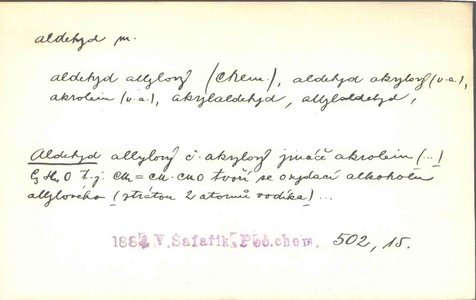 aldehyd m.
aldehyd allylový (chem.), aldehyd akrylový (v.a.),
akrolein (v.a.), akrylaldehyd, allylaldehyd,
Aldehyd allylový č. akrylový jináče akrolein (...)
C₃H₄O t.j. CH₂=CH.CHO tvoří se oxydací alkoholu
allylového (ztrátou 2 atomů vodíka) ...
V.Šafařík, Poč.chem. 502, 15.